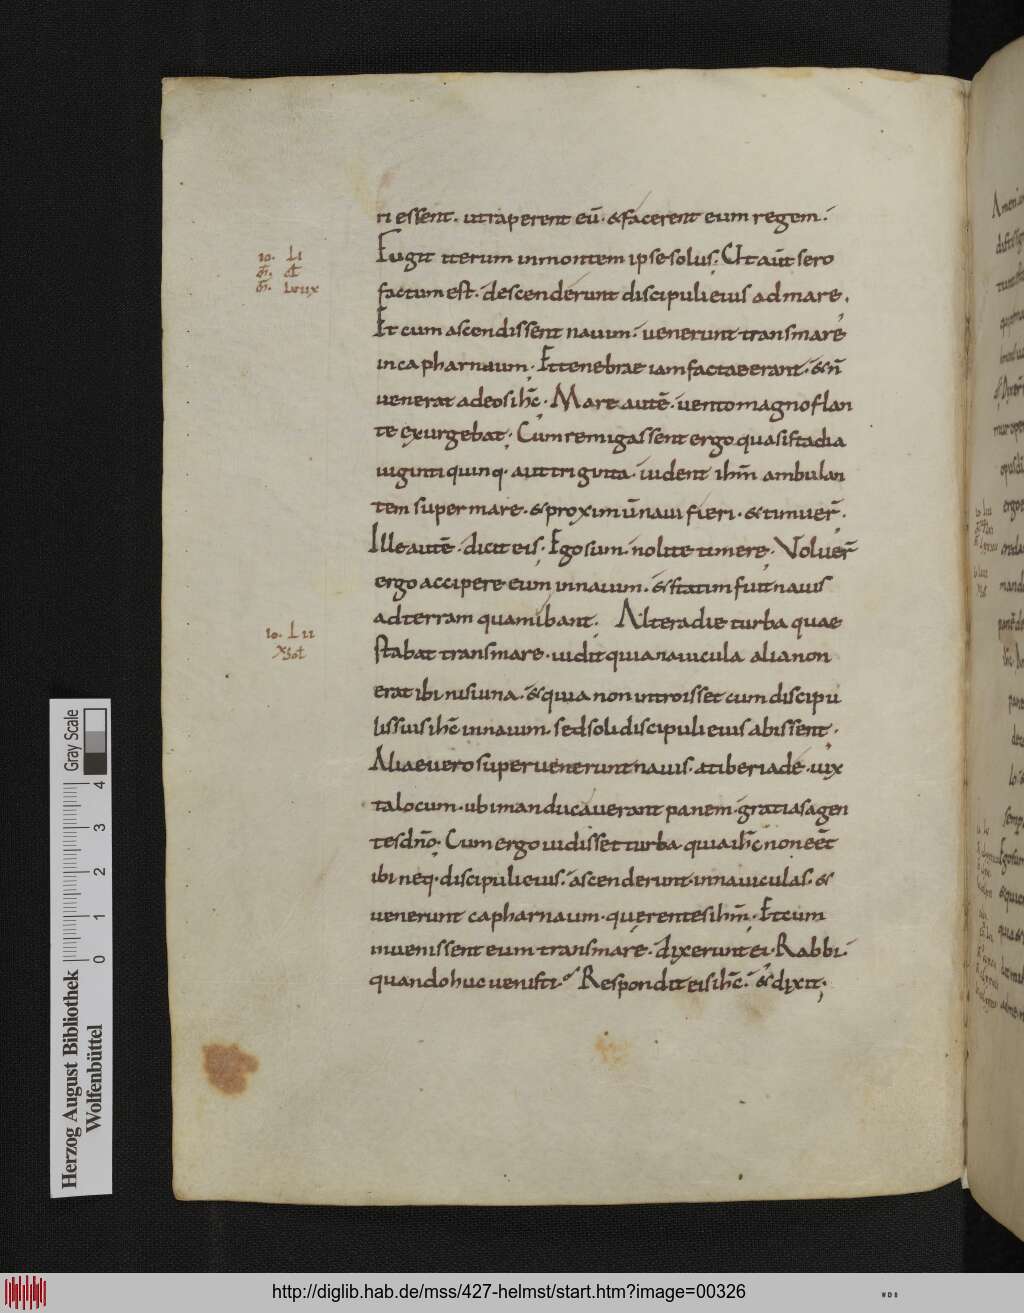 ri essent. ut raperent eū. & facerent eum regem.
Fugit iterum in montem ipse solus. Ut aūt sero
io. LI
factum est. descenderunt discipuli eius ad mare.
Et cum ascendissent nauim. uenerunt trans mare
in capharnaum. Et tenebrae iam factae erant. & n̄
uenerat ad eos ihc̄. Mare autē. uento magno flan
te exurgebat. Cum remigassent ergo quasi stadia
uiginti quinq. aut triginta. uident ihm̄ ambulan
tem super mare. & proximū naui fieri. & timuer̄.
Ille autē. dicit eis. Ego sum. nolite timere. Voluer̄
ergo accipere eum in nauim. & statim fuit nauis
ad terram quam ibant. Altera die turba quae
io. LII
stabat trans mare. uidit quia nauicula alia non
erat ibi nisi una. & quia non introisset cum discipu
lis suis ihc̄ in nauim. sed soli discipuli eius abissent.
Aliae uero superuenerunt naues. a tiberiade. iux
ta locum. ubi manducauerant panem. gratias agen
tes dn̄o. Cum ergo uidisset turba quia ihc̄ non eēt
ibi neq. discipuli eius. ascenderunt in nauiculas. &
uenerunt capharnaum. querentes ihm̄. Et cum
inuenissent eum trans mare. dixerunt ei. Rabbi.
quando huc uenisti. Respondit eis ihc̄. & dixit.
Gray Scale
0 1 2 3 4
Herzog August Bibliothek
Wolfenbüttel
http://diglib.hab.de/mss/427-helmst/start.htm?image=00326